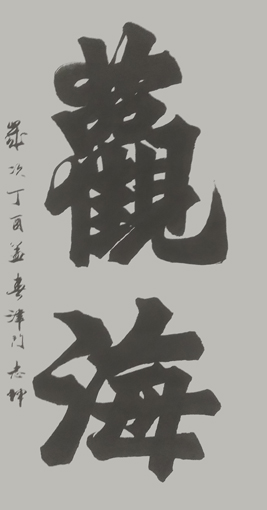 觀海
歲次丁丑孟春津門志坤